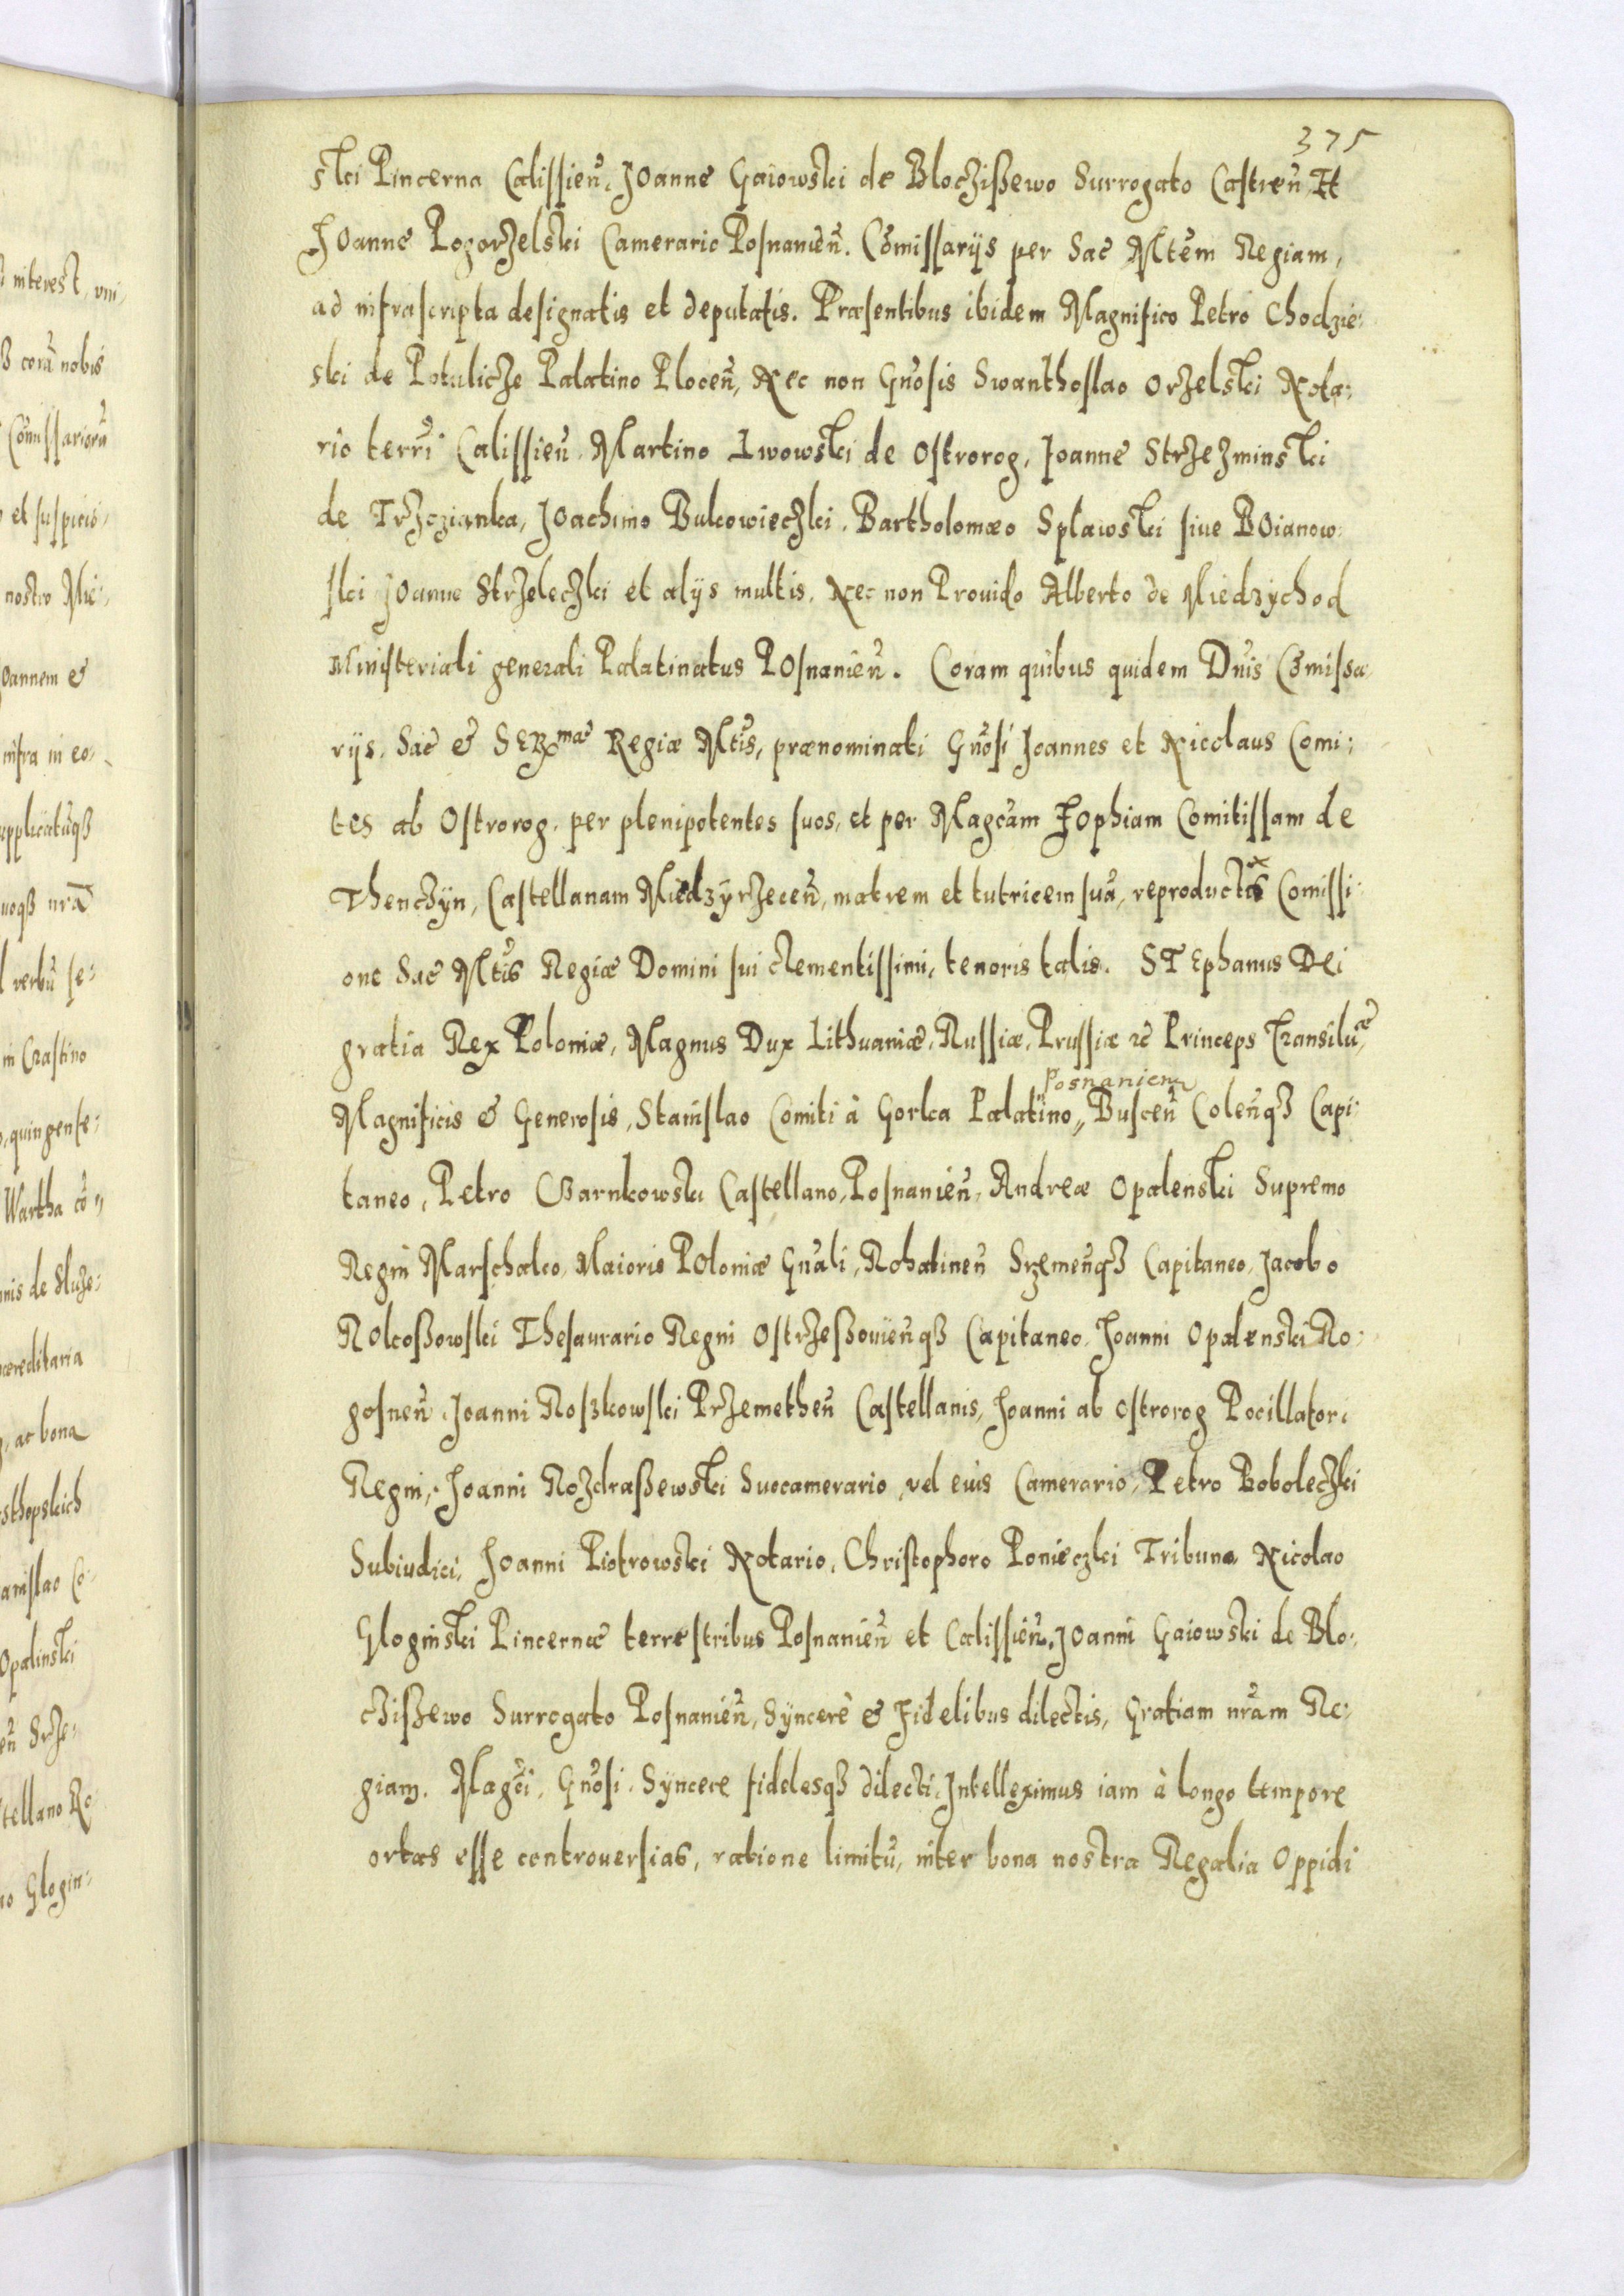 375
ski Pincerna Calissien̄. Joanne Gaiowski de Bloczißewo Surrogato Castren̄ Et
Joanne Pogorzelski Camerario Posnanien̄. Com̄issarijs per Sac̄ Mtem̄ Regiam,
ad infrascripta designatis et deputatis. Præsentibus ibidem Magnifico Petro Chodzie:
ski de Potulicze Palatino Plocen̄, Nec non Gn̄osis Swanthoslao Orzelski Nota:
rio terrī Calissien̄. Martino Lwowski de Ostrorog, Joanne Strzezminski
de Trzczianka, Joachimo Bukowieczki. Bartholomæo Splawski siue Boianow:
ski Joanne Strzeleczki et alijs multis. Nec non Prouido Alberto de Miedzychod
Ministeriali generali Palatinatus Posnanien̄. Coram quibus quidem Dn̄is Com̄issa
rijs. Sac̄ & Serᵐᵃᵉ Regiæ Mtis̄, prænominati Gn̄osi Joannes et Nicolaus Comi:
tes ab Ostrorog. per plenipotentes suos, et per Magcām Zophiam Comitissam de
Thenczyn, Castellanam Miedzyrzecen̄, matrem et tutricem suā, reproductis Comissi:
one Sac̄ Mtis̄ Regiæ Domini sui clementissimi, tenoris talis. STEphanus Dei
gratia Rex Poloniæ, Magnus Dux Lithuaniæ, Russiæ, Prussiæ &c̄ Princeps Transiluæ
Posnanien̄
Magnificis & Generosis, Stanislao Comiti à Gorka Palatino,, Buscen̄ Colen̄qȝ Capi:
taneo, Petro Czarnkowski Castellano, Posnanien̄, Andreæ Opalenski Supremo
Regni Marschalco, Maioris Poloniæ Gn̄ali, Rohatinen̄ Srzemen̄qȝ Capitaneo, Jacobo
Rokoßowski Thesaurario Regni Ostrzeßouien̄qȝ Capitaneo. Joanni Opalenski Ro:
gosnen̄. Joanni Roszkowski Przemethen̄ Castellanis, Joanni ab Ostrorog Pocillatori
Regni, Joanni Rozdraßewski Succamerario, vel eius Camerario, Petro Boboleczki
Subiudici, Joanni Piotrowski Notario, Christophoro Ponieczki Tribuno Nicolao
Gloginski Pincernæ terrestribus Posnanien̄ et Calissien̄, Joanni Gaiowski de Blo:
cziszewo Surrogato Posnanien̄, Syncerè & Fidelibus dilectis, Gratiam nr̄am Re:
giam. Magc̄i, Gn̄osi. Syncere fidelesqȝ dilecti, Intelleximus iam à longo tempore
ortas esse controuersias, ratione limitū, inter bona nostra Regalia Oppidi